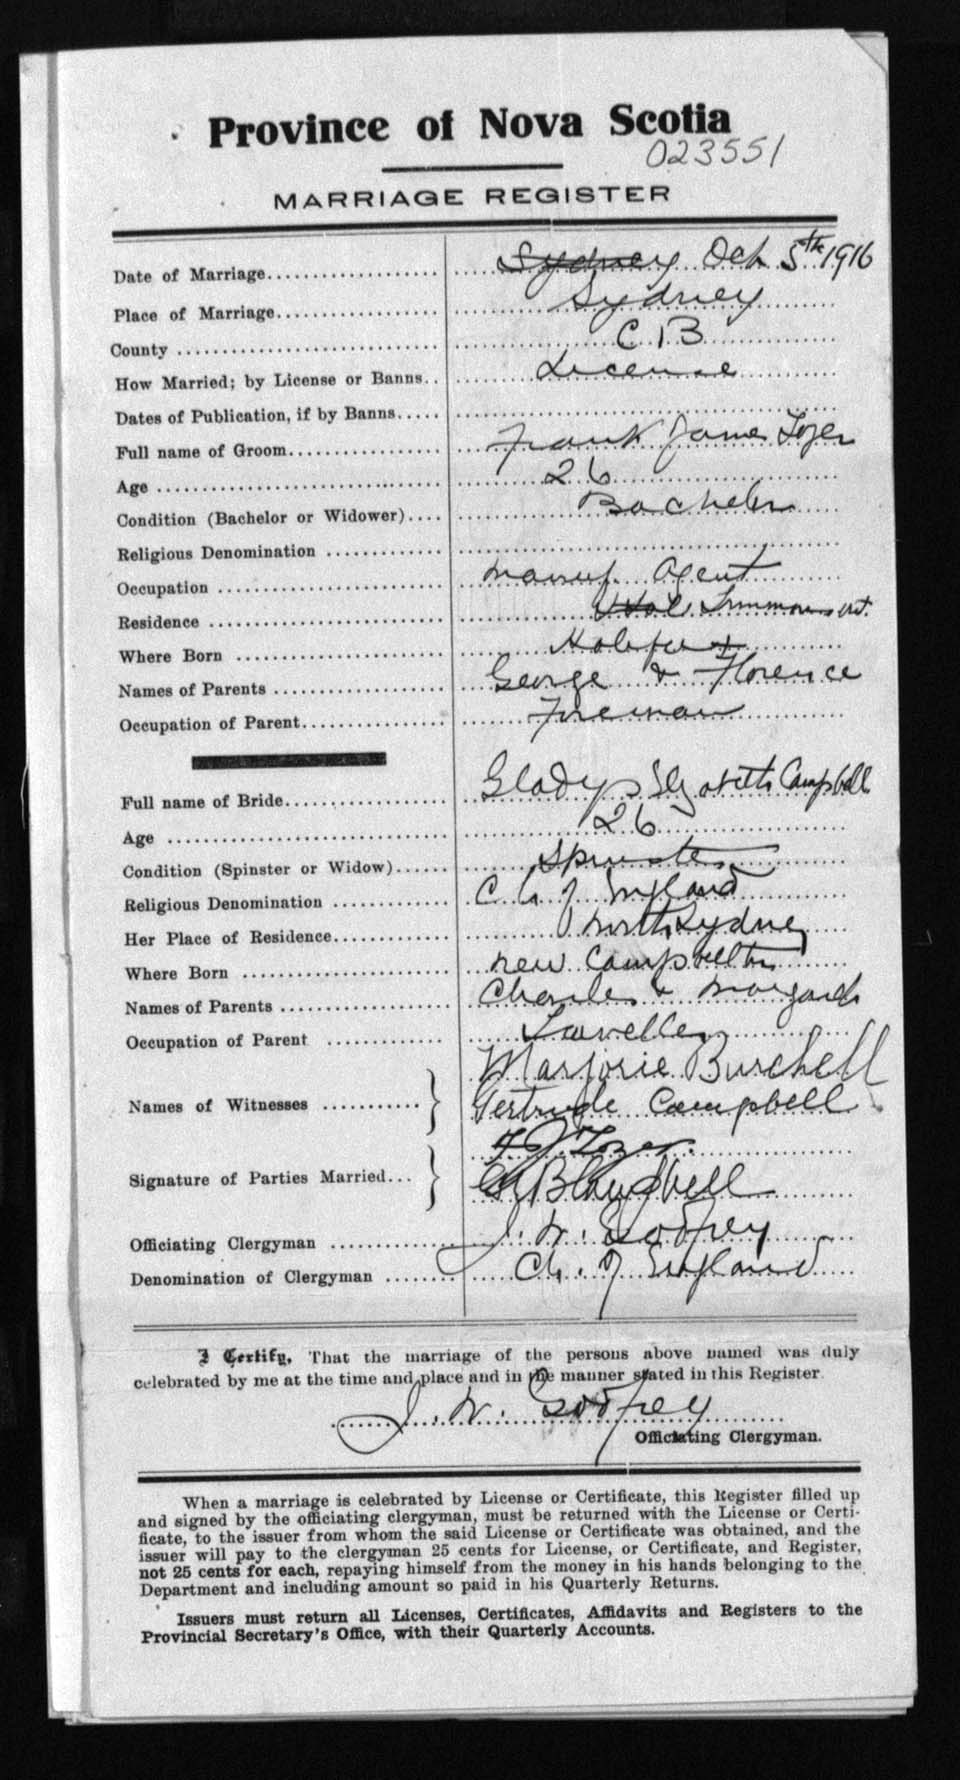 Province of Nova Scotia
023551
MARRIAGE REGISTER
Date of Marriage.................... Sydney Oct 5th 1916
Place of Marriage................... Sydney
County .............................. C B
How Married; by License or Banns.. License
Dates of Publication, if by Banns.....
Full name of Groom.................. Frank James Tozer
Age .................................. 26
Condition (Bachelor or Widower).... Bachelor
Religious Denomination ..............
Occupation .......................... Manuf. Agent
Residence ........................... Hal.
Where Born ......................... Halifax
Names of Parents .................... George & Florence
Occupation of Parent................. Foreman
Full name of Bride................... Gladys Elizabeth Campbell
Age .................................. 26
Condition (Spinster or Widow)...... Spinster
Religious Denomination ............. Ch of England
Her Place of Residence.............. North Sydney
Where Born ......................... New Campbellton
Names of Parents ................... Charles & Margaret
Occupation of Parent ..............
Names of Witnesses ........... } Marjorie Burchell
Gertrude Campbell
Signature of Parties Married... } F J Tozer.
G E Campbell
Officiating Clergyman ............... J. W. Godfrey
Denomination of Clergyman ........ Ch. of England
I Certify, That the marriage of the persons above named was duly
celebrated by me at the time and place and in the manner stated in this Register.
J. W. Godfrey
Officiating Clergyman.
When a marriage is celebrated by License or Certificate, this Register filled up
and signed by the officiating clergyman, must be returned with the License or Certi-
ficate, to the issuer from whom the said License or Certificate was obtained, and the
issuer will pay to the clergyman 25 cents for License, or Certificate, and Register,
not 25 cents for each, repaying himself from the money in his hands belonging to the
Department and including amount so paid in his Quarterly Returns.
Issuers must return all Licenses, Certificates, Affidavits and Registers to the
Provincial Secretary's Office, with their Quarterly Accounts.